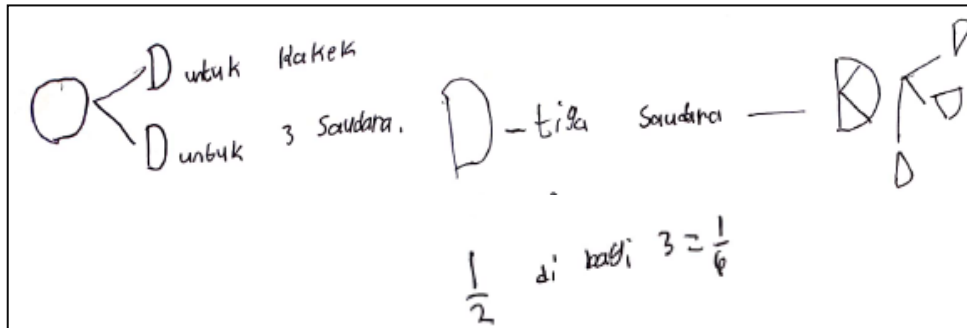 untuk kakek
untuk 3 Saudara.
- tiga Saudara —
1/2 di bagi 3 = 1/6